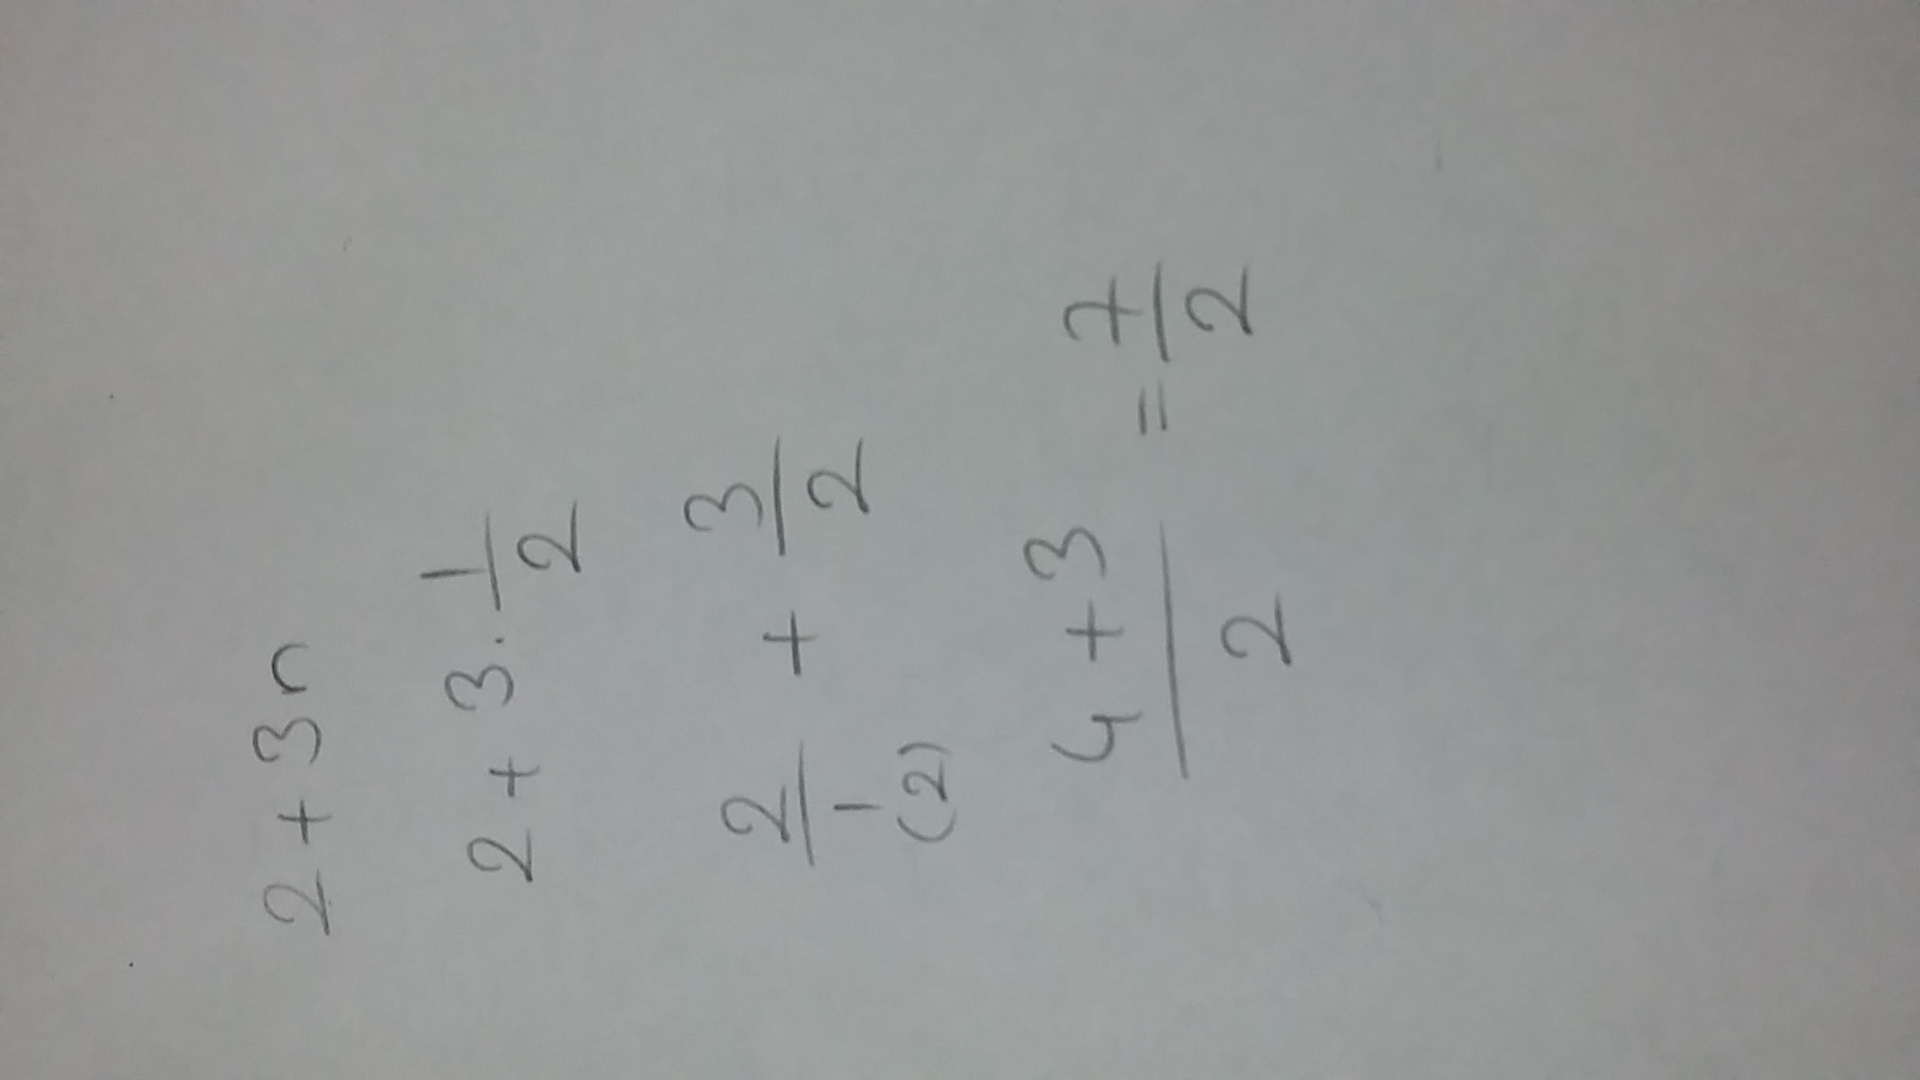 2 + 3n
2 + 3 . 1/2
2/1 + 3/2
(2)
4 + 3/2 = 7/2